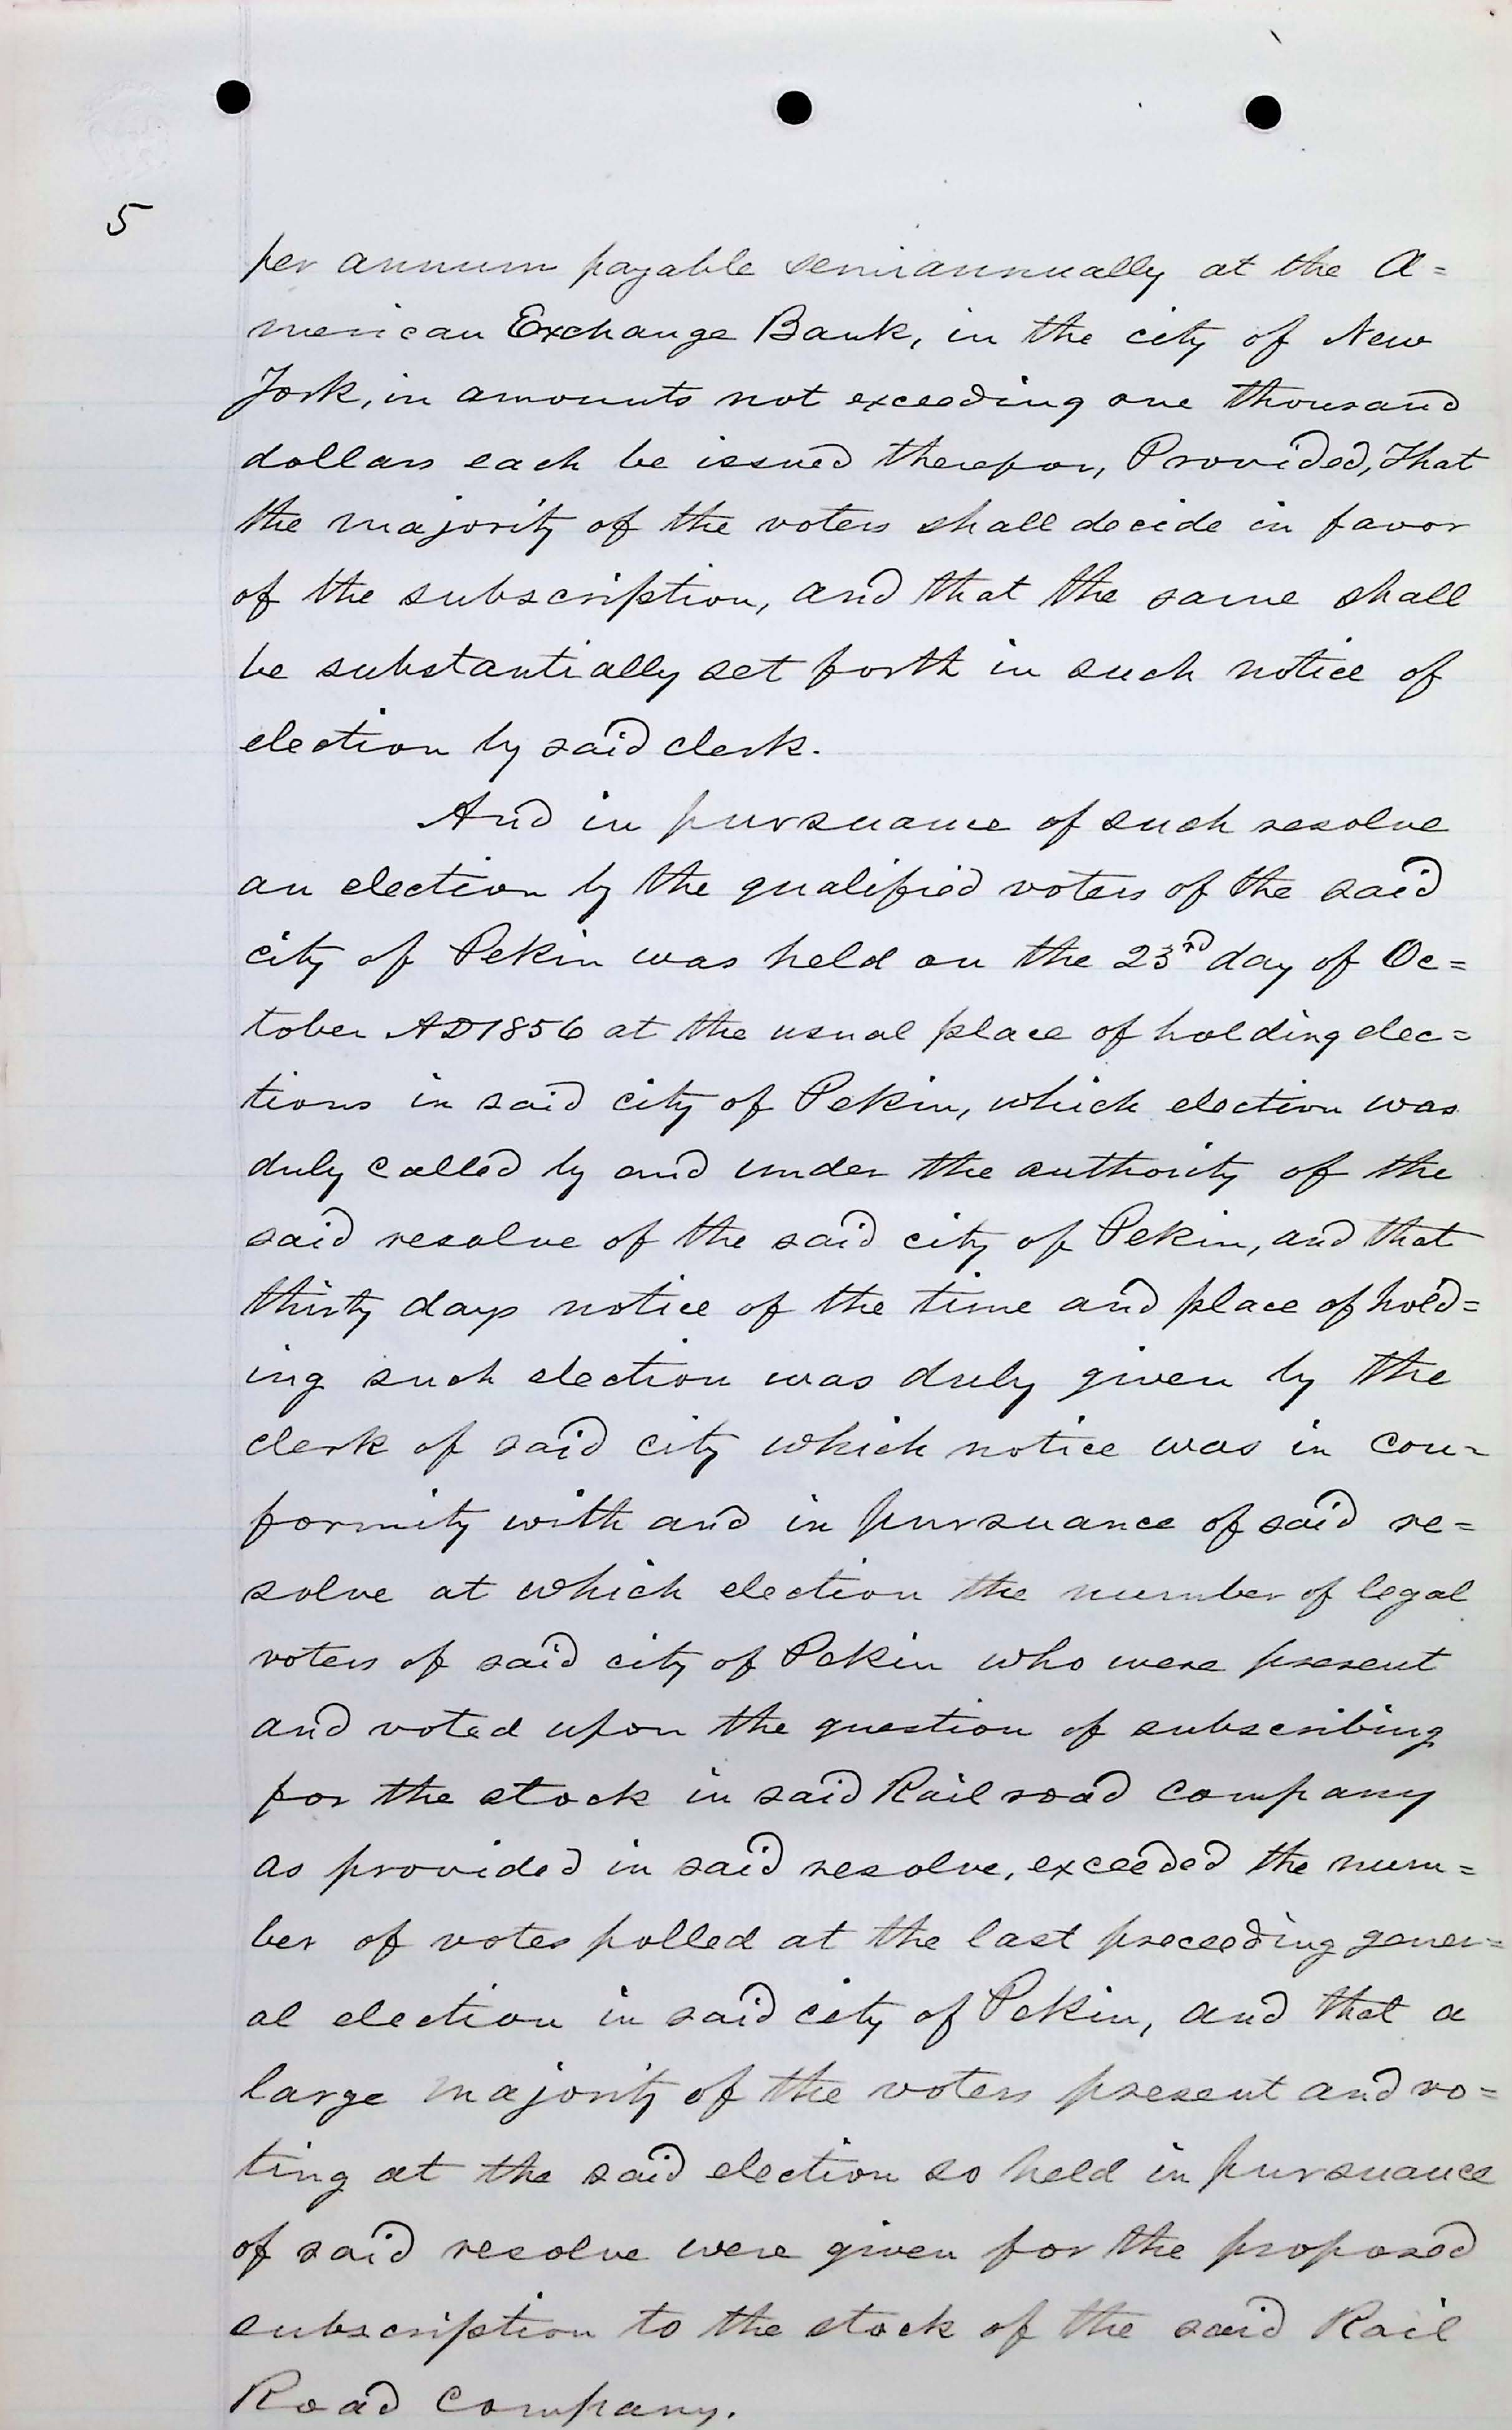 5
per annum payable semiannually at the A=
merican Exchange Bank, in the city of New
York, in amounts not exceeding one thousand
dollars each be issued therefor, Provided, That
the majority of the voters shall decide in favor
of the subscription, and that the same shall
be substantially set forth in such notice of
election by said clerk.
And in pursuance of such resolve
an election by the qualified voters of the said
city of Pekin was held on the 23rd day of Oc=
tober AD 1856 at the usual place of holding elec=
tions in said city of Pekin, which election was
duly called by and under the authority of the
said resolve of the said city of Pekin, and that
thirty days notice of the time and place of hold=
ing such election was duly given by the
clerk of said city which notice was in con-
formity with and in pursuance of said re=
solve at which election the number of legal
voters of said city of Pekin who were present
and voted upon the question of subscribing
for the stock in said Rail road company
as provided in said resolve, exceeded the num=
ber of votes polled at the last preceeding gener=
al election in said city of Pekin, and that a
large majority of the voters present and vo=
ting at the said election so held in pursuance
of said resolve were given for the proposed
subscription to the stock of the said Rail
Road Company.